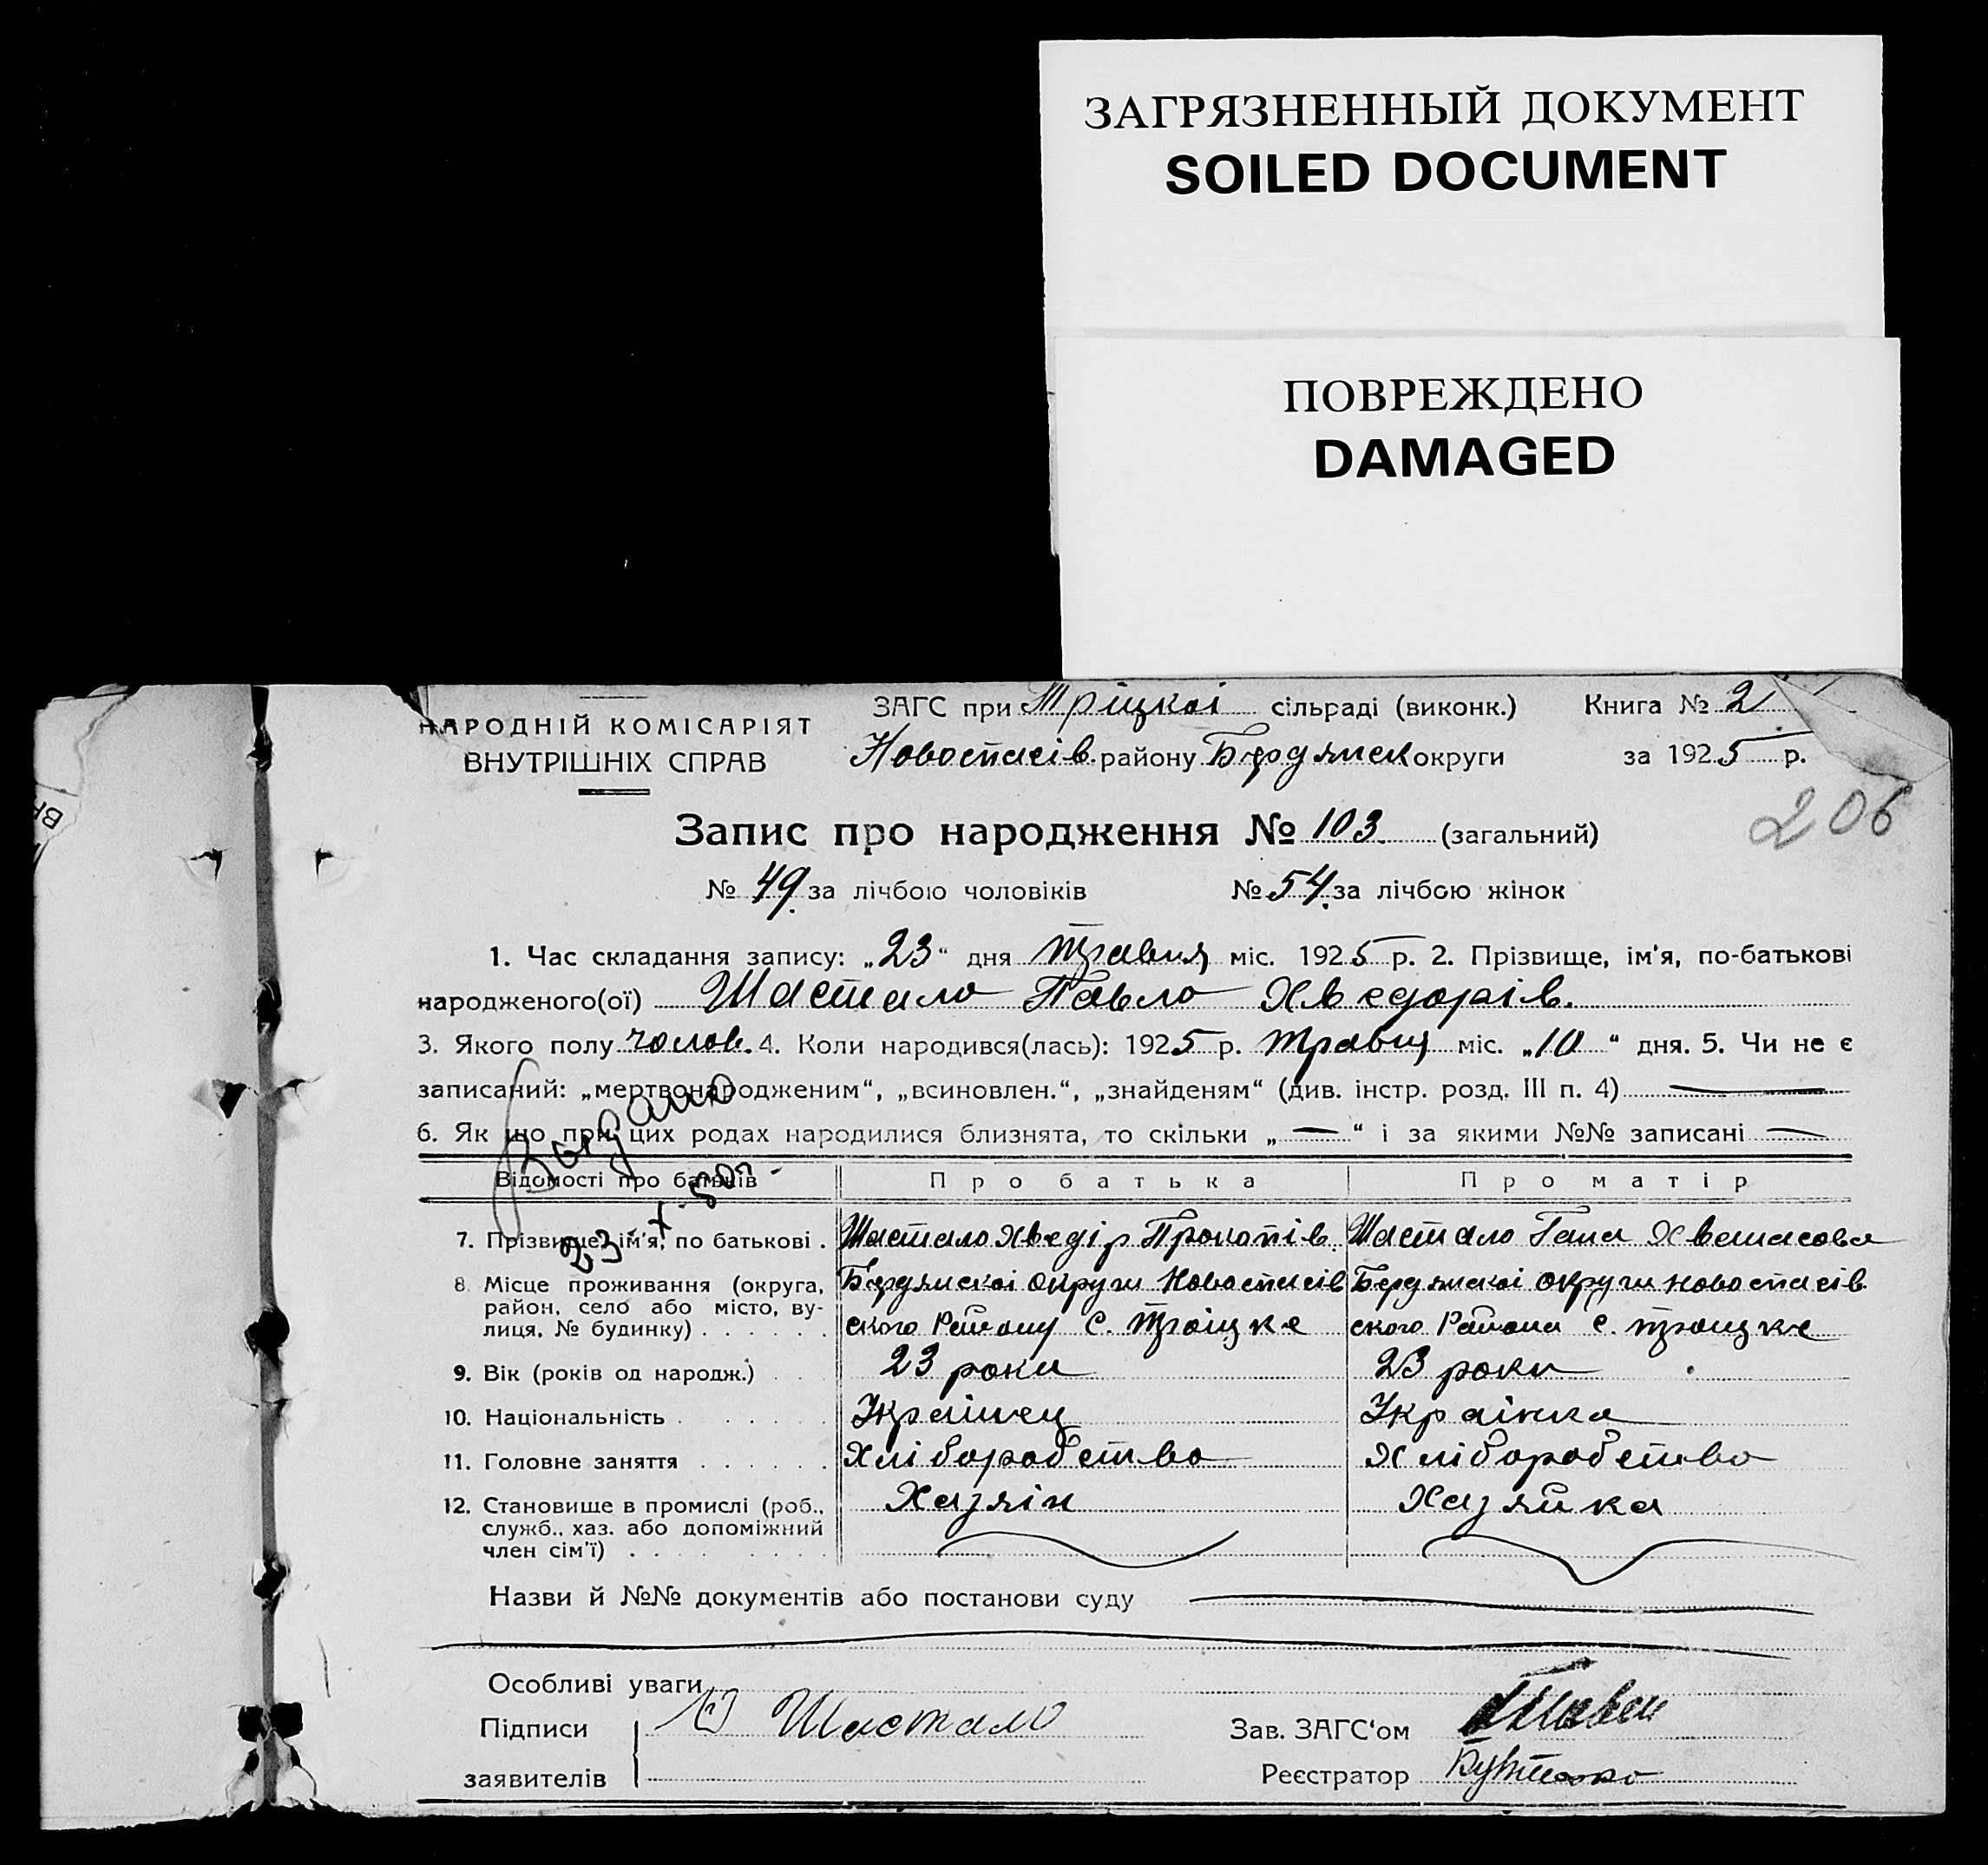 ЗАГРЯЗНЕННЫЙ ДОКУМЕНТ
SOILED DOCUMENT
ПОВРЕЖДЕНО
DAMAGED
НАРОДНІЙ КОМІСАРІЯТ
ВНУТРІШНІХ СПРАВ
ЗАГС при Тріцкоі сільраді (виконк.) Книга № 2
Новоспасів. району Бердянськ округи за 1925 р.
206
Запис про народження № 103. (загальний)
№ 49. за лічбою чоловіків № 54. за лічбою жінок
1. Час складання запису: „23“ дня Травня міс. 1925 р. 2. Прізвище, ім'я, по-батькові
народженого(ої) Шастало Павло Хведорів.
3. Якого полу чолов. 4. Коли народився(лась): 1925 р. Травня міс. „10“ дня. 5. Чи не є
записаний: „мертвонародженим“, „всиновлен.“, „знайденям“ (див. інстр. розд. III п. 4)
6. Як що при цих родах народилися близнята, то скільки „ — “ і за якими №№ записані —
Відомості про батьків Про батька Про матір
7. Прізвище, ім'я, по батькові . Шастало Хведір Прокопів. Шастало Гана Хванасова
8. Місце проживання (округа, Бердянскоі округи Новоспасів Бердянскоі округи Новоспасів
район, село або місто, ву-
лиця, № будинку) . . . . . . ского Району с. Троцке ского Района с. Троцке
9. Вік (років од народж.) . . . 23 роки 23 роки
10. Національність . . . . . . Украінец Украінка
11. Головне заняття . . . . . . Хліборобство Хліборобство
12. Становище в промислі (роб., Хазяін Хазяйка
служб., хаз. або допоміжний
член сім'ї) . . . . . . .
Видано
23. X.
Назви й №№ документів або постанови суду
Особливі уваги
Підписи Шастало Зав. ЗАГС'ом
заявителів Реєстратор